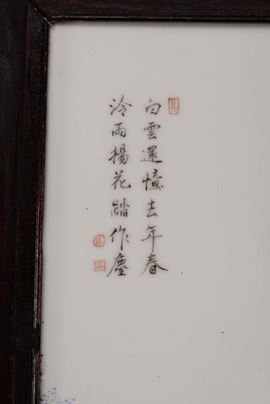 白雲還憶去年春
冷雨揚花踏作塵